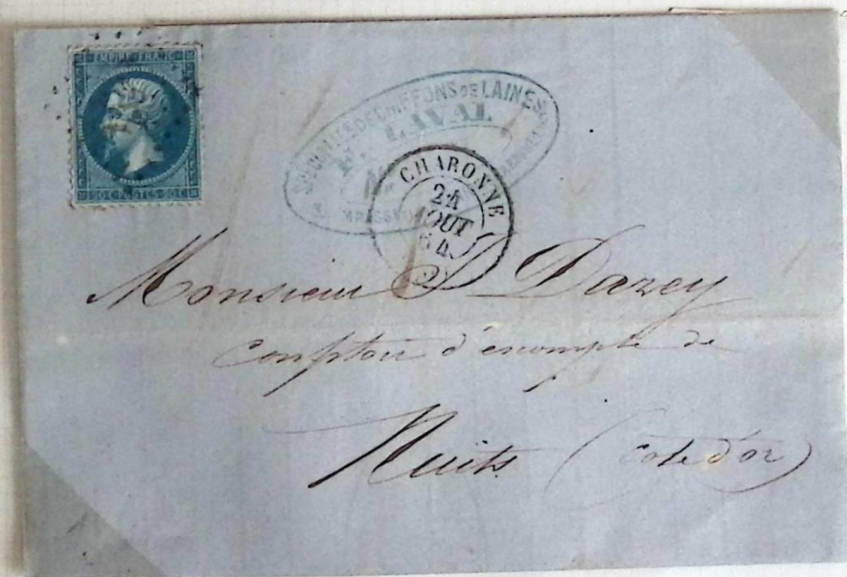 EMPIRE FRANC
20C POSTES 20C
SPÉCIALITÉ DE CHIFFONS DE LAINES
LAVAL
CHARONNE
24
AOUT
64
Monsieur D Dazey
comptoir d'escompte de
Nuits (cote d'or)